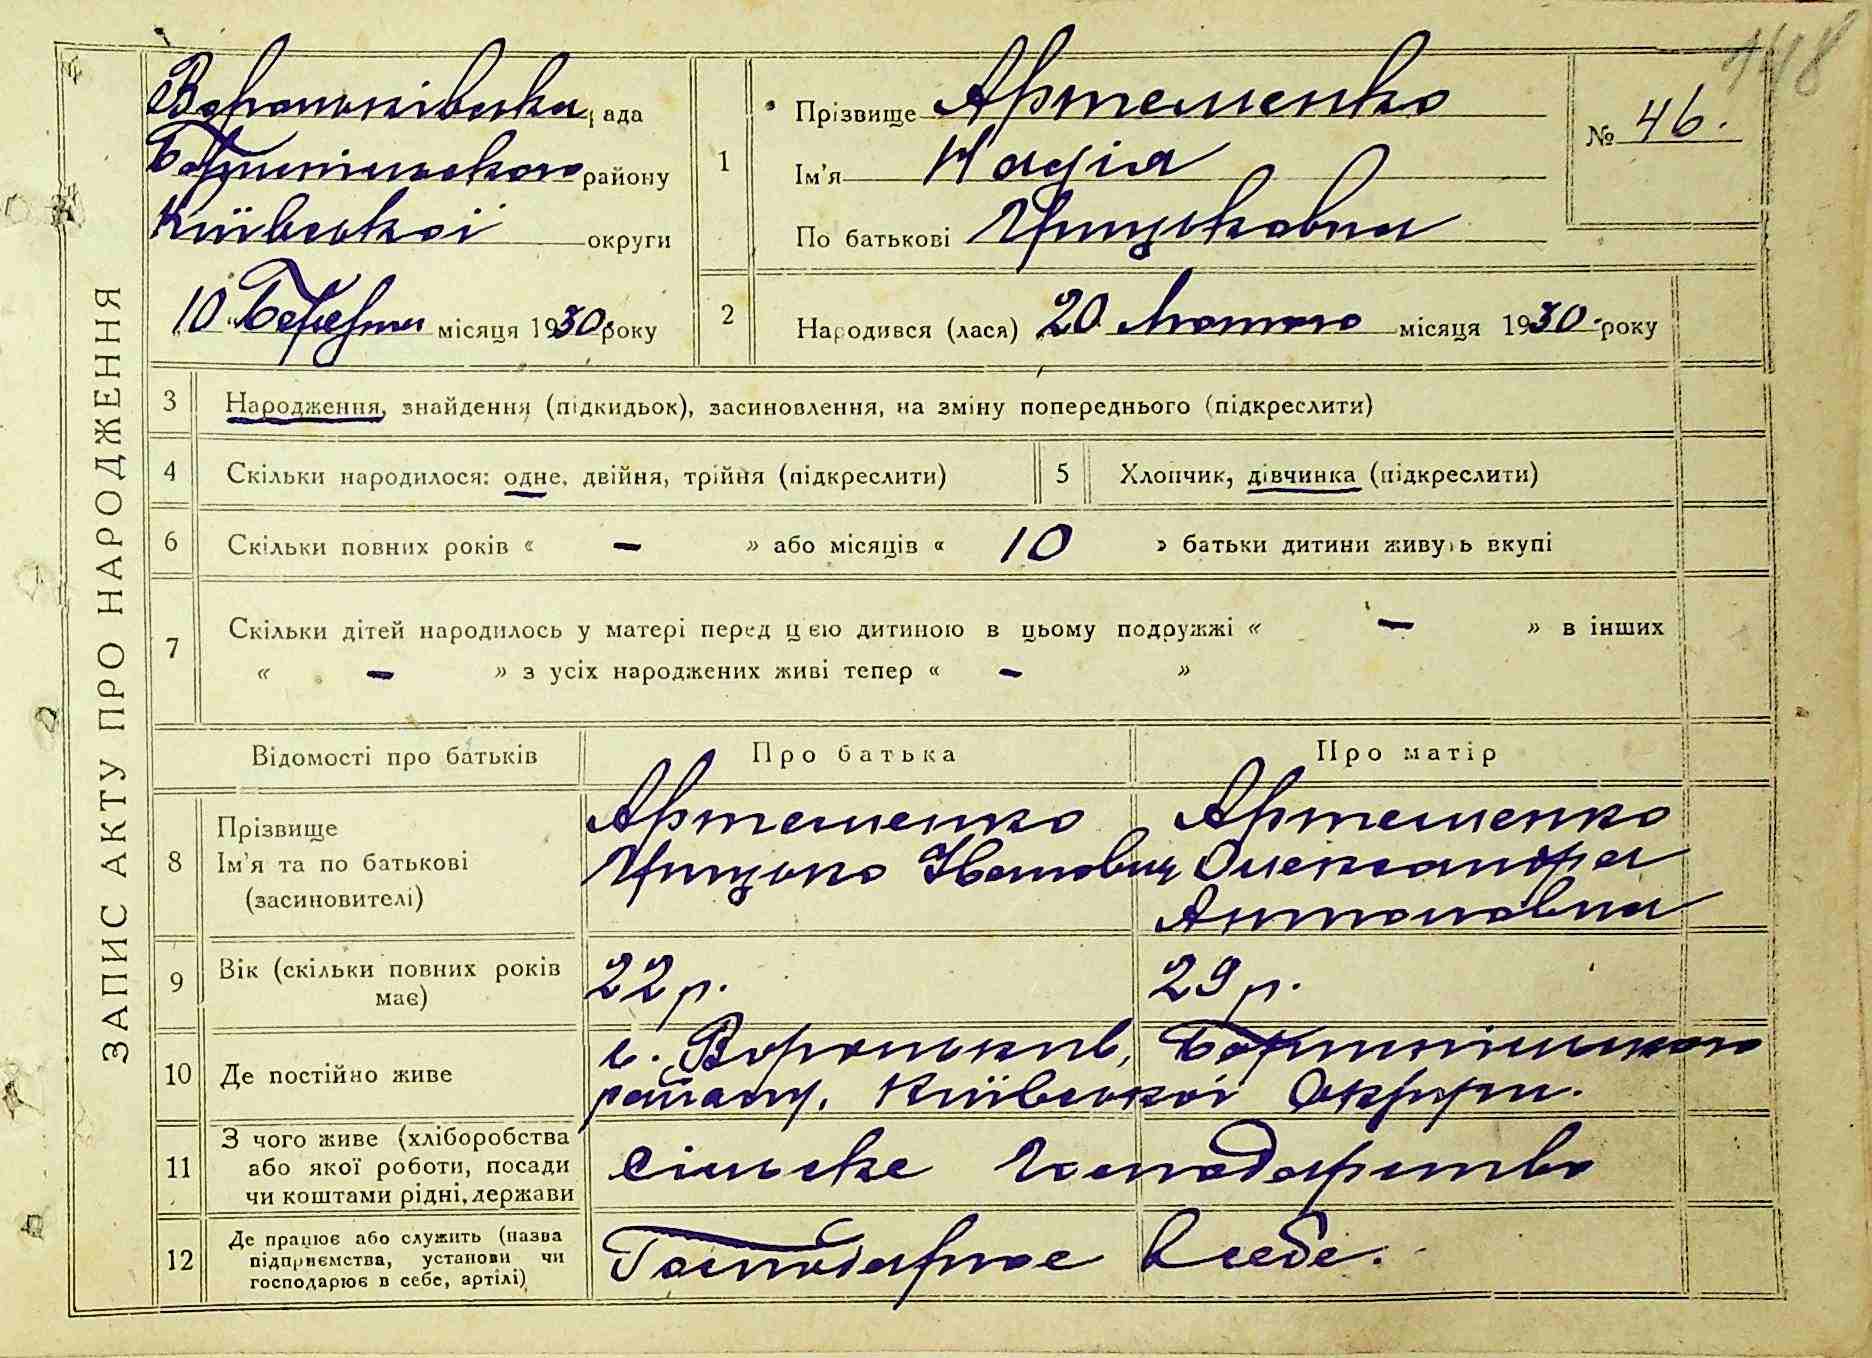 148
ЗАПИС АКТУ ПРО НАРОДЖЕННЯ
Вороньківська рада
Бориспільського району
Київської округи
10 Березня місяця 1930 року
1
Прізвище Артеменко
Ім'я Надія
По батькові Грицьковна
№ 46.
2
Народився (лася) 20 Лютого місяця 1930 року
3 Народження, знайдення (підкидьок), засиновлення, на зміну попереднього (підкреслити)
4 Скільки народилося: одне, двійня, трійня (підкреслити)
5 Хлопчик, дівчинка (підкреслити)
6 Скільки повних років « – » або місяців « 10 » батьки дитини живуть вкупі
7 Скільки дітей народилось у матері перед цією дитиною в цьому подружжі « – » в інших
« – » з усіх народжених живі тепер « – »
Відомості про батьків Про батька Про матір
8 Прізвище
Ім'я та по батькові
(засиновителі)
Артеменко
Грицько Іванович
Артеменко
Олександра
Антоновна
9 Вік (скільки повних років
має)
22 р. 29 р.
10 Де постійно живе
с. Вороньків, Бориспільского
району, Київської Округи.
11 З чого живе (хліборобства
або якої роботи, посади
чи коштами рідні, держави
сільске господарство
12 Де працює або служить (назва
підприємства, установи чи
господарює в себе, артілі)
Господарює в себе.